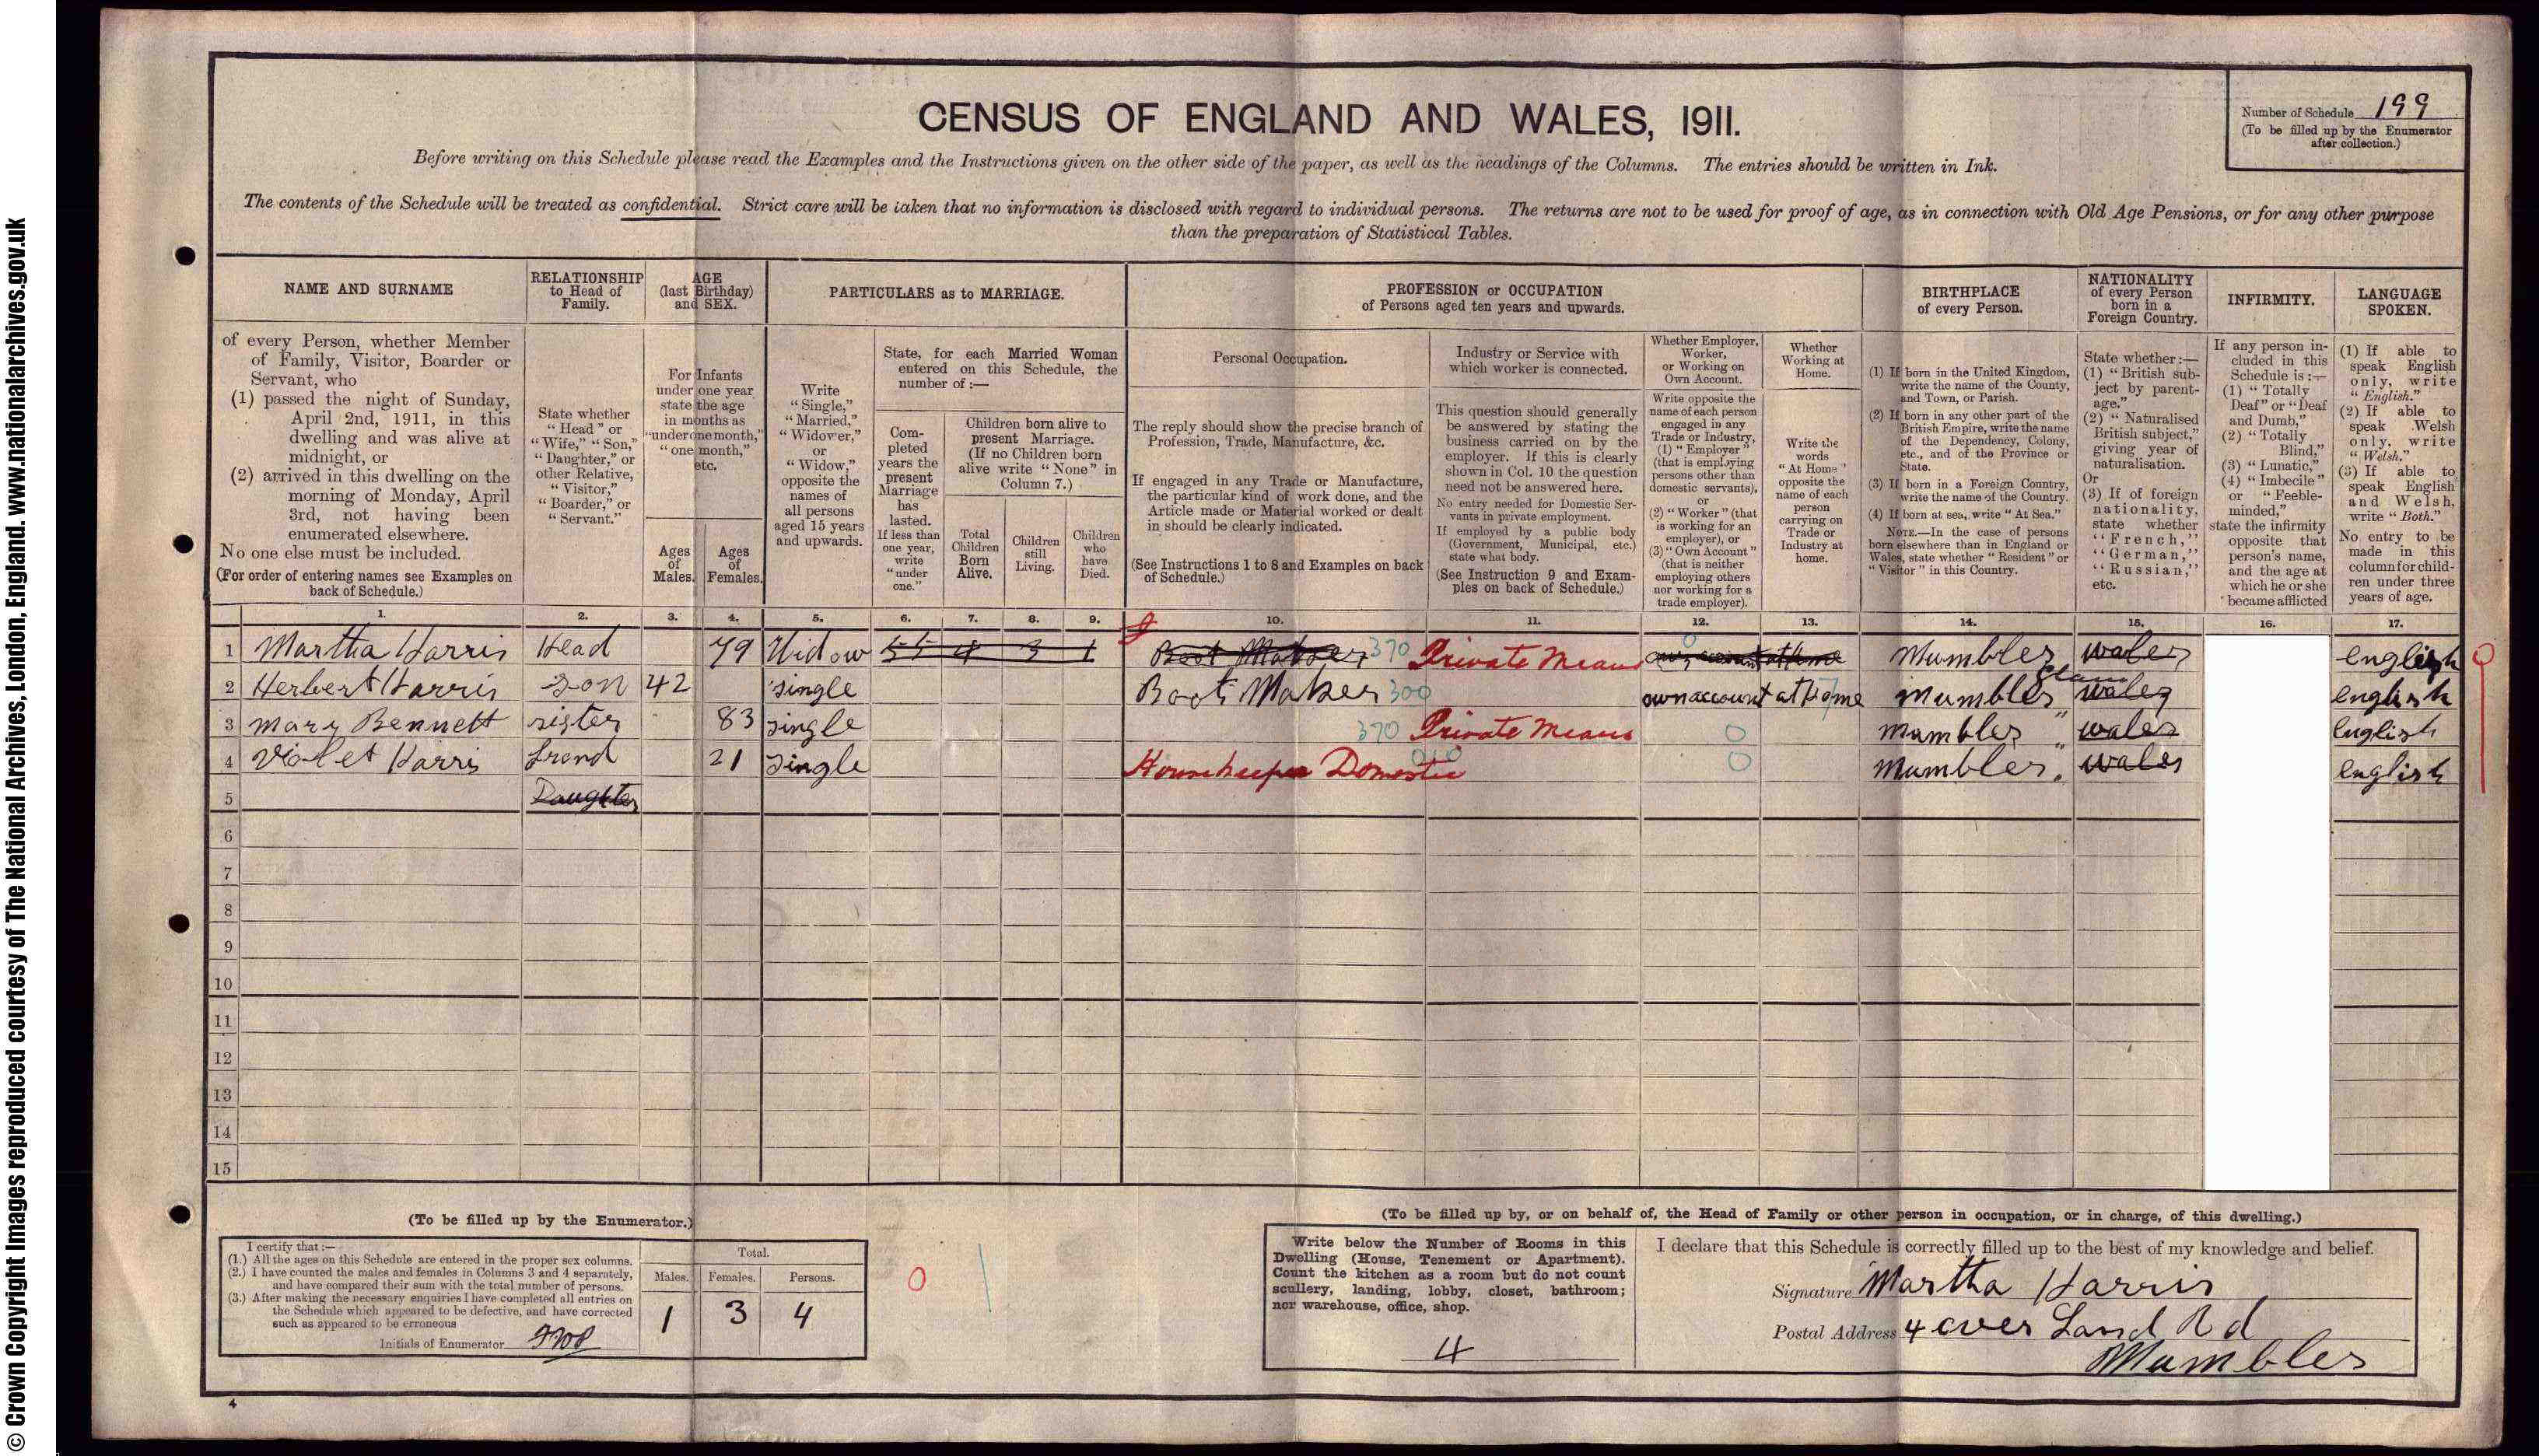 © Crown Copyright Images reproduced courtesy of The National Archives, London, England. www.nationalarchives.gov.uk
CENSUS OF ENGLAND AND WALES, 1911.
Number of Schedule 199
(To be filled up by the Enumerator after collection.)
Before writing on this Schedule please read the Examples and the Instructions given on the other side of the paper, as well as the headings of the Columns. The entries should be written in Ink.
The contents of the Schedule will be treated as confidential. Strict care will be taken that no information is disclosed with regard to individual persons. The returns are not to be used for proof of age, as in connection with Old Age Pensions, or for any other purpose
than the preparation of Statistical Tables.
NAME AND SURNAME
of every Person, whether Member
of Family, Visitor, Boarder or
Servant, who
(1) passed the night of Sunday,
April 2nd, 1911, in this
dwelling and was alive at
midnight, or
(2) arrived in this dwelling on the
morning of Monday, April
3rd, not having been
enumerated elsewhere.
No one else must be included.
(For order of entering names see Examples on
back of Schedule.)
RELATIONSHIP
to Head of
Family.
State whether
"Head" or
"Wife," "Son,"
"Daughter," or
other Relative,
"Visitor,"
"Boarder," or
"Servant."
AGE
(last Birthday)
and SEX.
For Infants
under one year
state the age
in months as
"under one month,"
"one month,"
etc.
Ages
of
Males.
Ages
of
Females.
PARTICULARS as to MARRIAGE.
Write
"Single,"
"Married,"
"Widower,"
or
"Widow,"
opposite the
names of
all persons
aged 15 years
and upwards.
State, for each Married Woman
entered on this Schedule, the
number of :—
Com-
pleted
years the
present
Marriage
has
lasted.
If less than
one year,
write
"under
one."
Children born alive to
present Marriage.
(If no Children born
alive write "None" in
Column 7.)
Total
Children
Born
Alive.
Children
still
Living.
Children
who
have
Died.
PROFESSION or OCCUPATION
of Persons aged ten years and upwards.
Personal Occupation.
The reply should show the precise branch of
Profession, Trade, Manufacture, &c.
If engaged in any Trade or Manufacture,
the particular kind of work done, and the
Article made or Material worked or dealt
in should be clearly indicated.
(See Instructions 1 to 8 and Examples on back
of Schedule.)
Industry or Service with
which worker is connected.
This question should generally
be answered by stating the
business carried on by the
employer. If this is clearly
shown in Col. 10 the question
need not be answered here.
No entry needed for Domestic Ser-
vants in private employment.
If employed by a public body
(Government, Municipal, etc.)
state what body.
(See Instruction 9 and Exam-
ples on back of Schedule.)
Whether Employer,
Worker,
or Working on
Own Account.
Write opposite the
name of each person
engaged in any
Trade or Industry,
(1) "Employer"
(that is employing
persons other than
domestic servants),
or
(2) "Worker" (that
is working for an
employer), or
(3) "Own Account"
(that is neither
employing others
nor working for a
trade employer).
Whether
Working at
Home.
Write the
words
"At Home"
opposite the
name of each
person
carrying on
Trade or
Industry at
home.
BIRTHPLACE
of every Person.
(1) If born in the United Kingdom,
write the name of the County,
and Town, or Parish.
(2) If born in any other part of the
British Empire, write the name
of the Dependency, Colony,
etc., and of the Province or
State.
(3) If born in a Foreign Country,
write the name of the Country.
(4) If born at sea, write "At Sea."
NOTE.—In the case of persons
born elsewhere than in England or
Wales, state whether "Resident" or
"Visitor" in this Country.
NATIONALITY
of every Person
born in a
Foreign Country.
State whether :—
(1) "British sub-
ject by parent-
age."
(2) "Naturalised
British subject,"
giving year of
naturalisation.
Or
(3) If of foreign
nationality,
state whether
"French,"
"German,"
"Russian,"
etc.
INFIRMITY.
If any person in-
cluded in this
Schedule is :—
(1) "Totally
Deaf" or "Deaf
and Dumb,"
(2) "Totally
Blind,"
(3) "Lunatic,"
(4) "Imbecile"
or "Feeble-
minded,"
state the infirmity
opposite that
person's name,
and the age at
which he or she
became afflicted
LANGUAGE
SPOKEN.
(1) If able to
speak English
only, write
"English."
(2) If able to
speak Welsh
only, write
"Welsh."
(3) If able to
speak English
and Welsh,
write "Both."
No entry to be
made in this
column for child-
ren under three
years of age.
1. 2. 3. 4. 5. 6. 7. 8. 9. 10. 11. 12. 13. 14. 15. 16. 17.
1 Martha Harris Head 79 Widow 55 4 3 1 Boot Maker 370 Private Means own account at home Mumbles wales english
2 Herbert Harris son 42 single Boot Maker 300 own account at home Mumbles Glam wales english
3 mary Bennett sister 83 single 370 Private Means 0 mumbles " wales english
4 Violet Harris Grand 21 single Housekeeper Domestic 0 Mumbles " wales english
5 Daughter
6
7
8
9
10
11
12
13
14
15
(To be filled up by the Enumerator.)
I certify that :—
(1.) All the ages on this Schedule are entered in the proper sex columns.
(2.) I have counted the males and females in Columns 3 and 4 separately,
and have compared their sum with the total number of persons.
(3.) After making the necessary enquiries I have completed all entries on
the Schedule which appeared to be defective, and have corrected
such as appeared to be erroneous
Initials of Enumerator
Total.
Males. Females. Persons.
1 3 4
0
(To be filled up by, or on behalf of, the Head of Family or other person in occupation, or in charge, of this dwelling.)
Write below the Number of Rooms in this
Dwelling (House, Tenement or Apartment).
Count the kitchen as a room but do not count
scullery, landing, lobby, closet, bathroom;
nor warehouse, office, shop.
4
I declare that this Schedule is correctly filled up to the best of my knowledge and belief.
Signature Martha Harris
Postal Address 4 over Land Rd
Mumbles
4